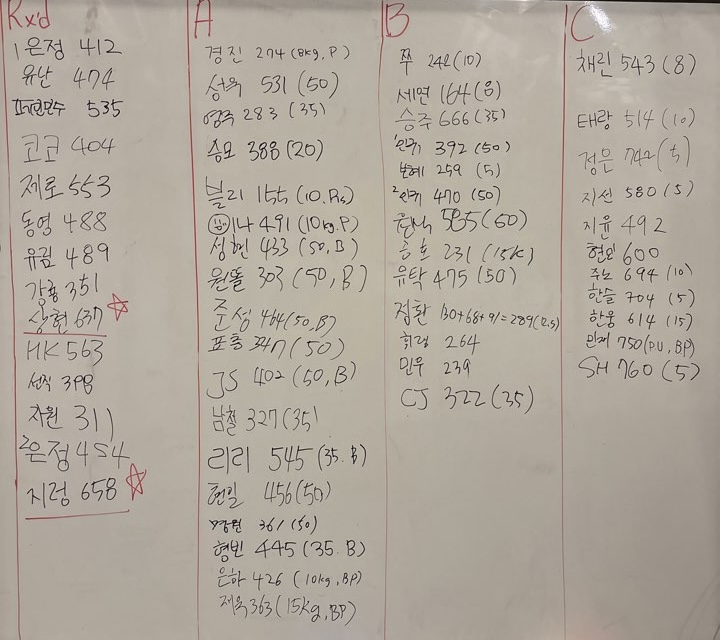 Rx'd
1 은정 412
유난 474
535
코코 404
제로 553
동영 488
유림 489
강룡 351
상현 637
HK 563
서직 398
자원 311
2 은정 454
지경 658
A
경진 274 (8kg, P)
성욱 531 (50)
영국 283 (35)
승모 388 (20)
블리 155 (10. Ris)
나 491 (10kg. P)
성현 433 (50, B)
원똘 303 (50, B)
준성 464 (50, B)
표충 347 (50)
JS 402 (50, B)
남철 327 (35)
리리 545 (35. B)
현일 456 (50)
361 (50)
형빈 445 (35. B)
은하 426 (10kg, BP)
제욱 363 (15kg, BP)
B
쭈 242 (10)
세연 164 (8)
승주 666 (35)
1 인규 392 (50)
보혜 259 (5)
2 인규 470 (50)
585 (50)
승호 231 (15k)
유탁 475 (50)
정환 130+68+91=289 (12.5)
264
민우 239
CJ 322 (35)
C
채린 543 (8)
태랑 514 (10)
정은 742 (5)
지선 580 (5)
지윤 492
현외 600
주노 694 (10)
한슬 704 (5)
한웅 614 (15)
민재 750 (PU, BP)
SH 760 (5)